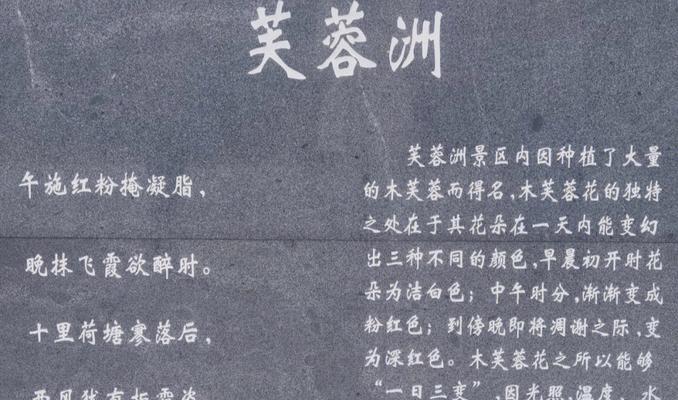 芙蓉洲
午施红粉掩凝脂，
晚抹飞霞欲醉时。
十里荷塘寥落后，
西风犹有拒霜姿
芙蓉洲景区内因种植了大量
的木芙蓉而得名，木芙蓉花的独特
之处在于其花朵在一天内能变幻
出三种不同的颜色，早晨初开时花
朵为洁白色；中午时分，渐渐变成
粉红色；到傍晚即将凋谢之际，变
为深红色。木芙蓉花之所以能够
“一日三变”，因光照、温度、水